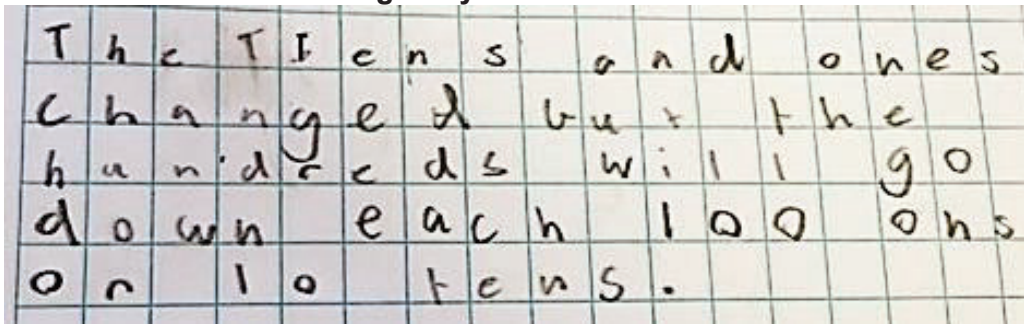 The TIens and ones
changed but the
hundreds will go
down each 100 ons
or 10 tens.